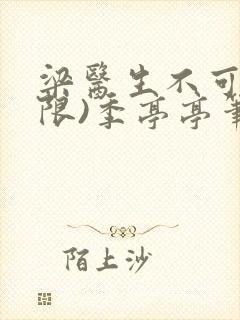 梁醫生不可
限)季亭亭
陌上沙